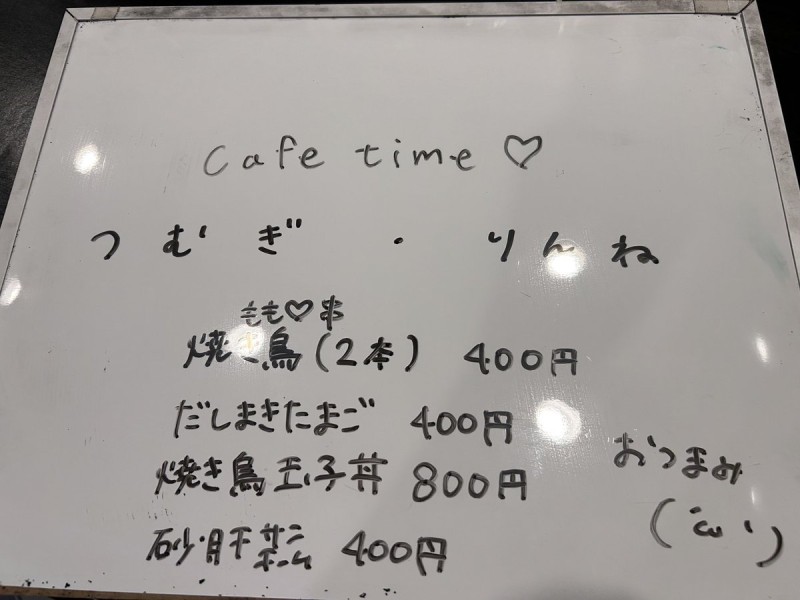 Cafe time ♡
つむぎ ・ りんね
もも♡串
焼き鳥(2本) 400円
だしまきたまご 400円
焼き鳥玉子丼 800円
砂肝 400円
おつまみ
(´ω`)